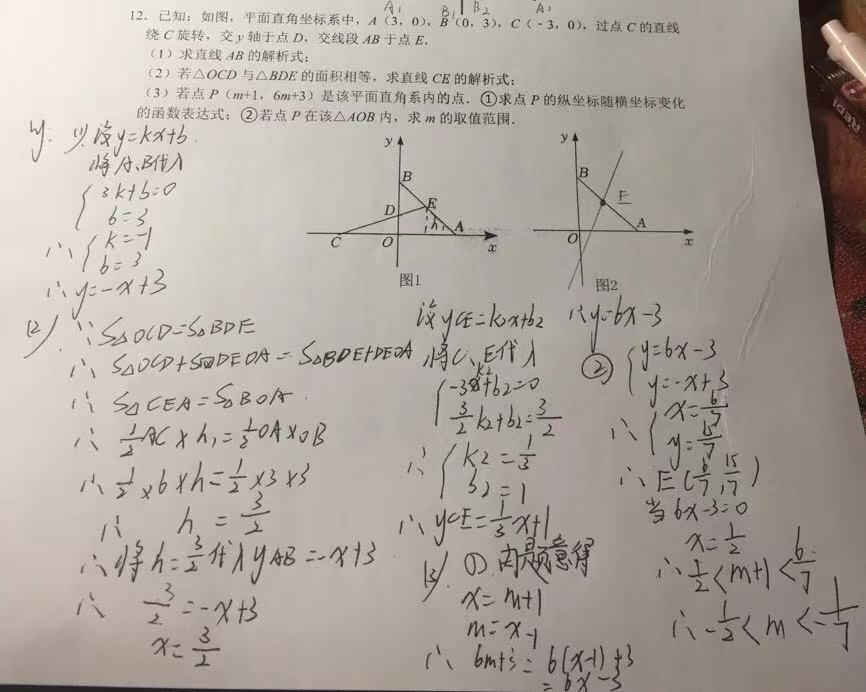 A₁ B₁ B₂ A₂
12. 已知：如图，平面直角坐标系中，A（3，0），B（0，3），C（-3，0），过点 C 的直线
绕 C 旋转，交 y 轴于点 D，交线段 AB 于点 E．
（1）求直线 AB 的解析式；
（2）若△OCD 与△BDE 的面积相等，求直线 CE 的解析式；
（3）若点 P（m+1，6m+3）是该平面直角系内的点．①求点 P 的纵坐标随横坐标变化
的函数表达式；②若点 P 在该△AOB 内，求 m 的取值范围．
(1) 设y=kx+b
将A、B代入
3k+b=0
b=3
∴ k=-1
b=3
∴ y=-x+3
y
B
D
E
h
C
O
A
x
图1
y
B
E
O
A
x
图2
(2) ∵S△OCD=S△BDE
∴ S△OCD+S四DEOA = S△BDE+DEOA
∴ S△CEA=S△BOA
∴ ½AC×h₁=½OA×OB
∴ ½×6×h=½×3×3
∴ h = 3/2
∴将h=3/2代入yAB=-x+3
∴ 3/2=-x+3
x=3/2
设yCE=k₂x+b₂
将C、E代入
-3k₂+b₂=0
3/2k₂+b₂=3/2
∴ k₂=1/3
b₂=1
∴yCE=1/3x+1
(3) ①由题意得
x=m+1
m=x-1
∴ 6m+3=6(x-1)+3
=6x-3
∴y=6x-3
② y=6x-3
y=-x+3
∴ x=6/7
y=15/7
∴ E(6/7,15/7)
当6x-3=0
x=1/2
∴ 1/2<m+1<6/7
∴ -1/2<m<-1/7